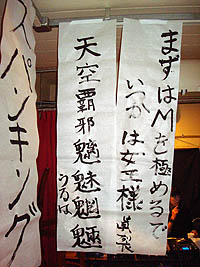 まずはMを極めるで
いつかは女王様
天空覇邪魑魅魍魎
うるは
スパンキング